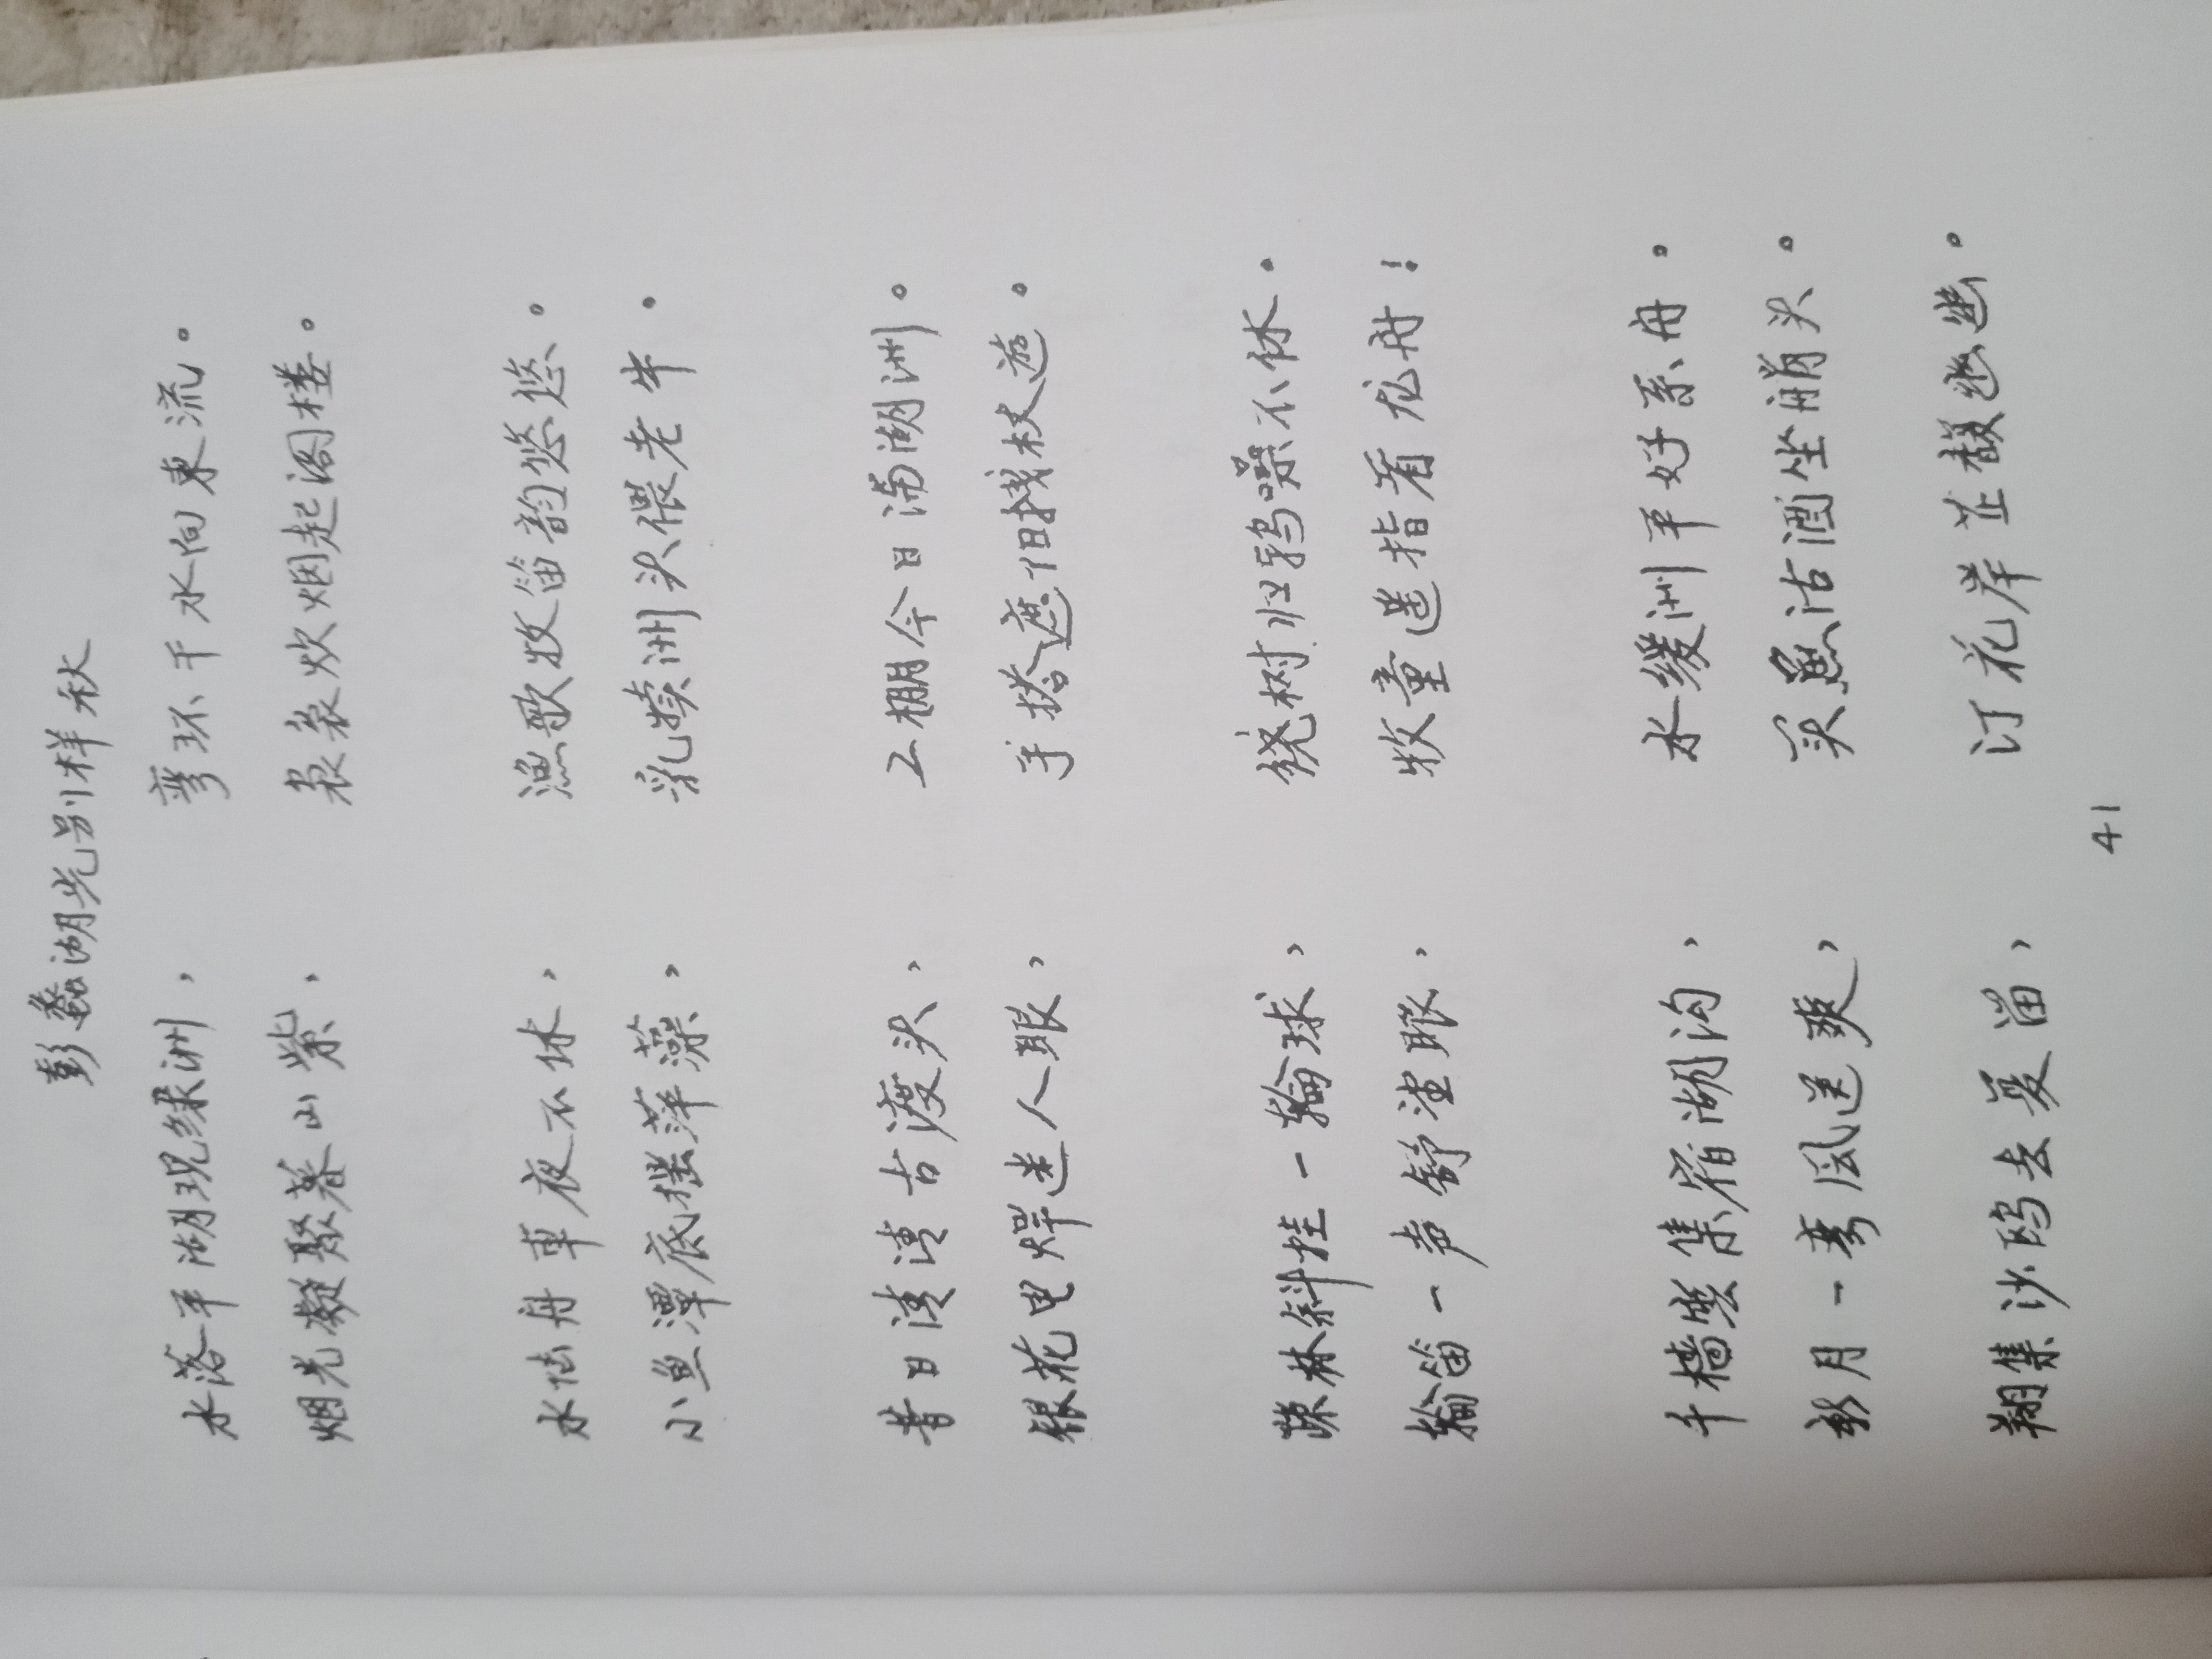 彭蠡湖光别样秋
水落平湖现绿洲， 弯环千水向東流。
烟光凝聚暮山紫， 袅袅炊烟起阁楼。
水陆舟車夜不休， 渔歌牧笛韵悠悠。
小鱼潭底摇萍藻， 乳犊洲头偎老牛。
昔日凄凄古渡头， 工棚今日满湖洲。
银花电焊迷人眼， 手搭遮阳找杖遊。
疎林斜挂一輪球， 绕树归鸦噪不休。
輪笛一声舒望眼， 牧童遥指看龙舟！
千樯麇集宿湖沟， 水缓洲平好系舟。
新月一弯风送爽， 买魚沽酒坐艄头。
翔集沙鸥去复留， 汀花岸芷馥幽幽。
41